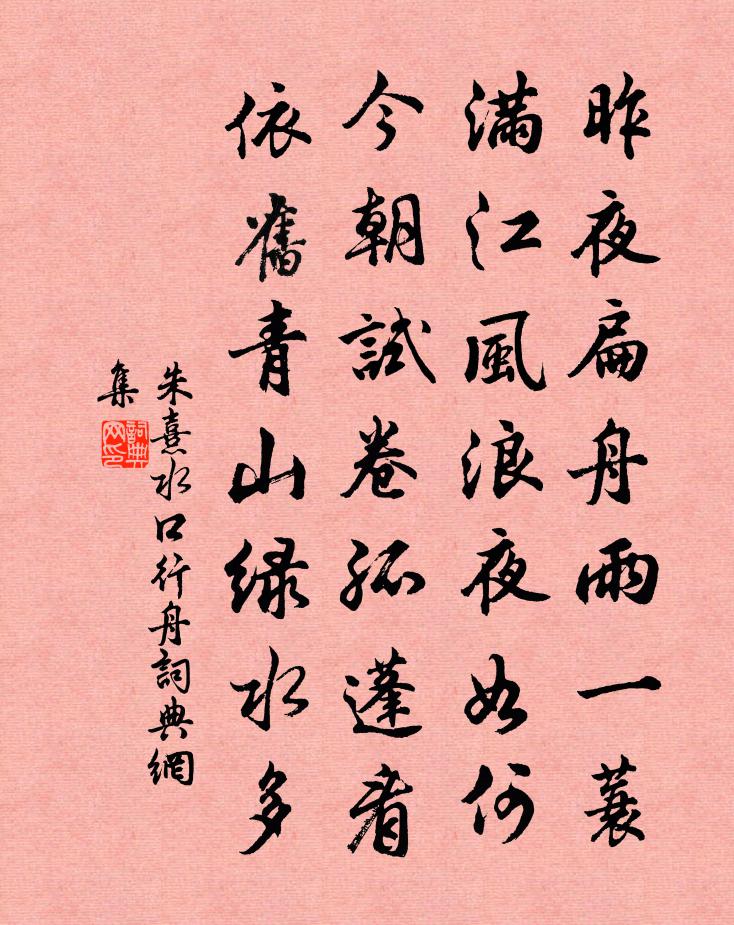 昨夜扁舟雨一蓑
滿江風浪夜如何
今朝試卷孤蓬看
依舊青山绿水多
朱熹水口行舟詞典網
集
詞典
网印